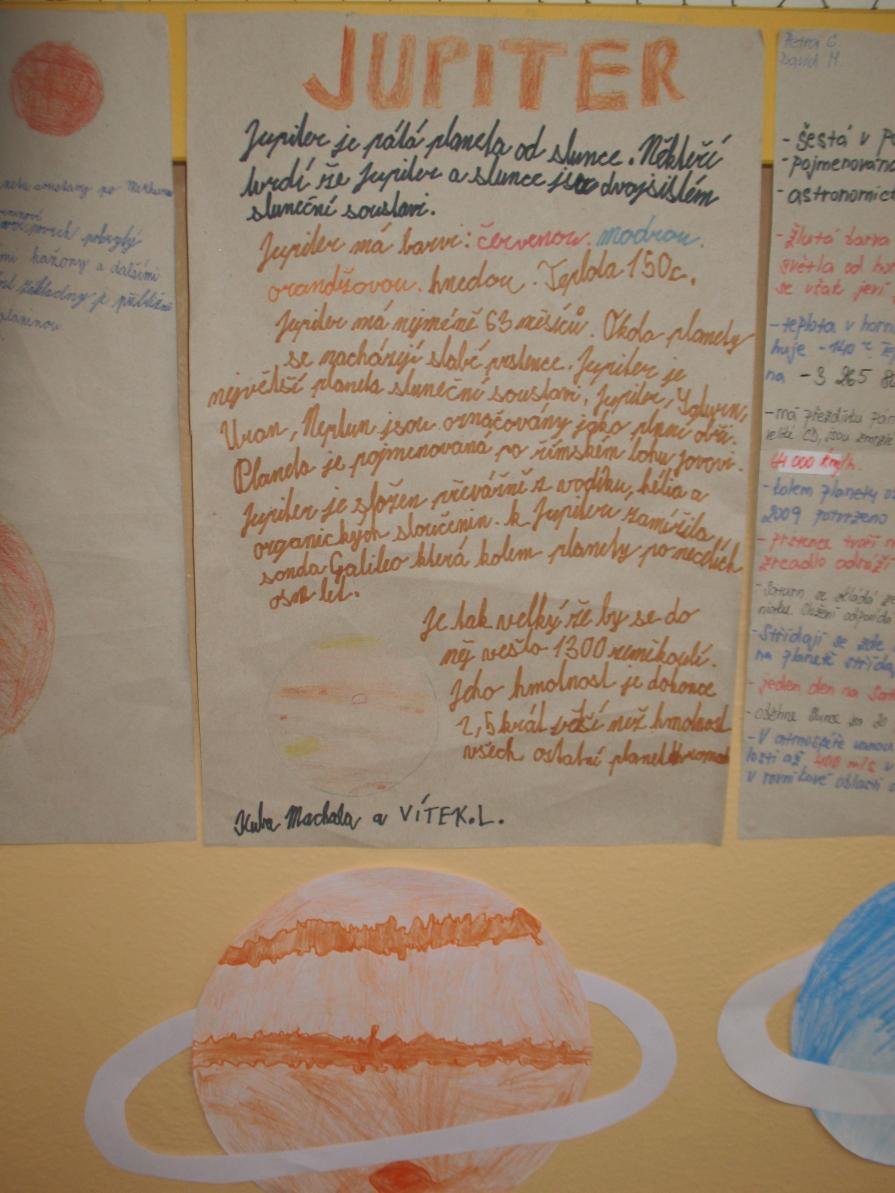 JUPITER
Jupiter je pátá planeta od slunce. Někteří
tvrdí že Jupiter a slunce jsou dvojsistém
sluneční soustavi.
Jupiter má barvi: červenou. modrou.
orandžovou. hnedou. Teplota 150c.
Jupiter má nejméně 63 měsíců. Okolo planety
se nacházejí slabé prstence. Jupiter je
největší planeta sluneční soustavi. Jupiter, Saturn,
Uran, Neptun jsou označovány jako plyní obři.
Planeta je pojmenovaná po římském bohu Jovovi.
Jupiter je složen převážně z vodíku, hélia a
organických sloučenin. k Jupiteru zamířila
sonda Galileo která kolem planety po
osm let.
Je tak velký že by se do
něj vešlo 1300 zemikoulí.
Jeho hmotnost je dokonce
2,5 krát větší než hmotnost
všech ostatní planet
Kuba Machala a VÍTEK.L.
povrch pokrytý
kaňony a dalšími
je přibližně
planinou
Petra C.
David M.
- šestá v
- pojmenována
- astronomic
- žlutá barva
světla od hor
se však jeví
- teplota v horn
huje -140 °C
na -3 265
- má přezdívku
41 000 km/h.
- kolem planety
2009 potvrzena
- prstence tvoří
zrcadlo odráží
- Saturn se skládá
- Střídají se zde
na planetě střída
- jeden den na Sa
- oběhne Slunce za 30
- V atmosféře vanou
losti až 400 m/s v
v rovníkové oblasti